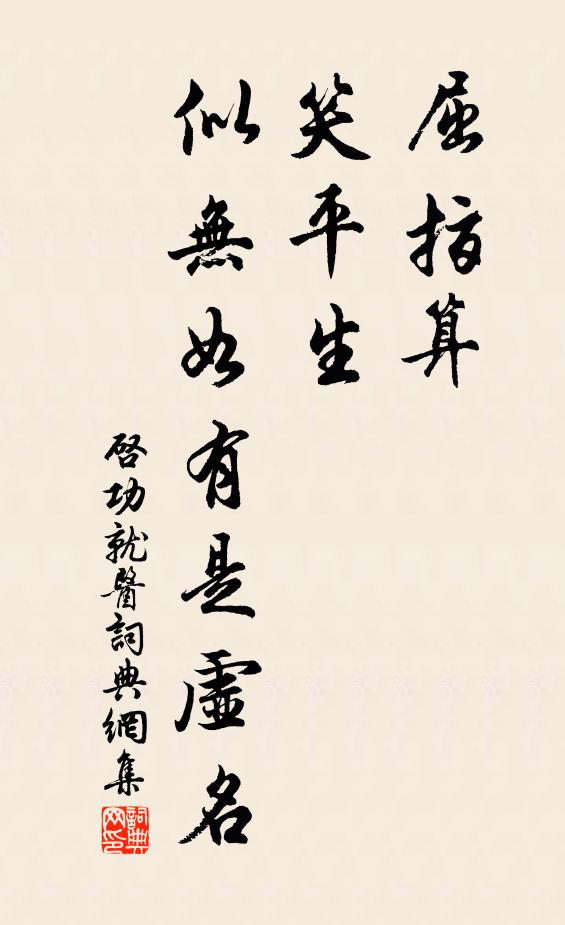 屈指算
笑平生
似無如有是虛名
啓功就醫詞典網集
詞典
网印